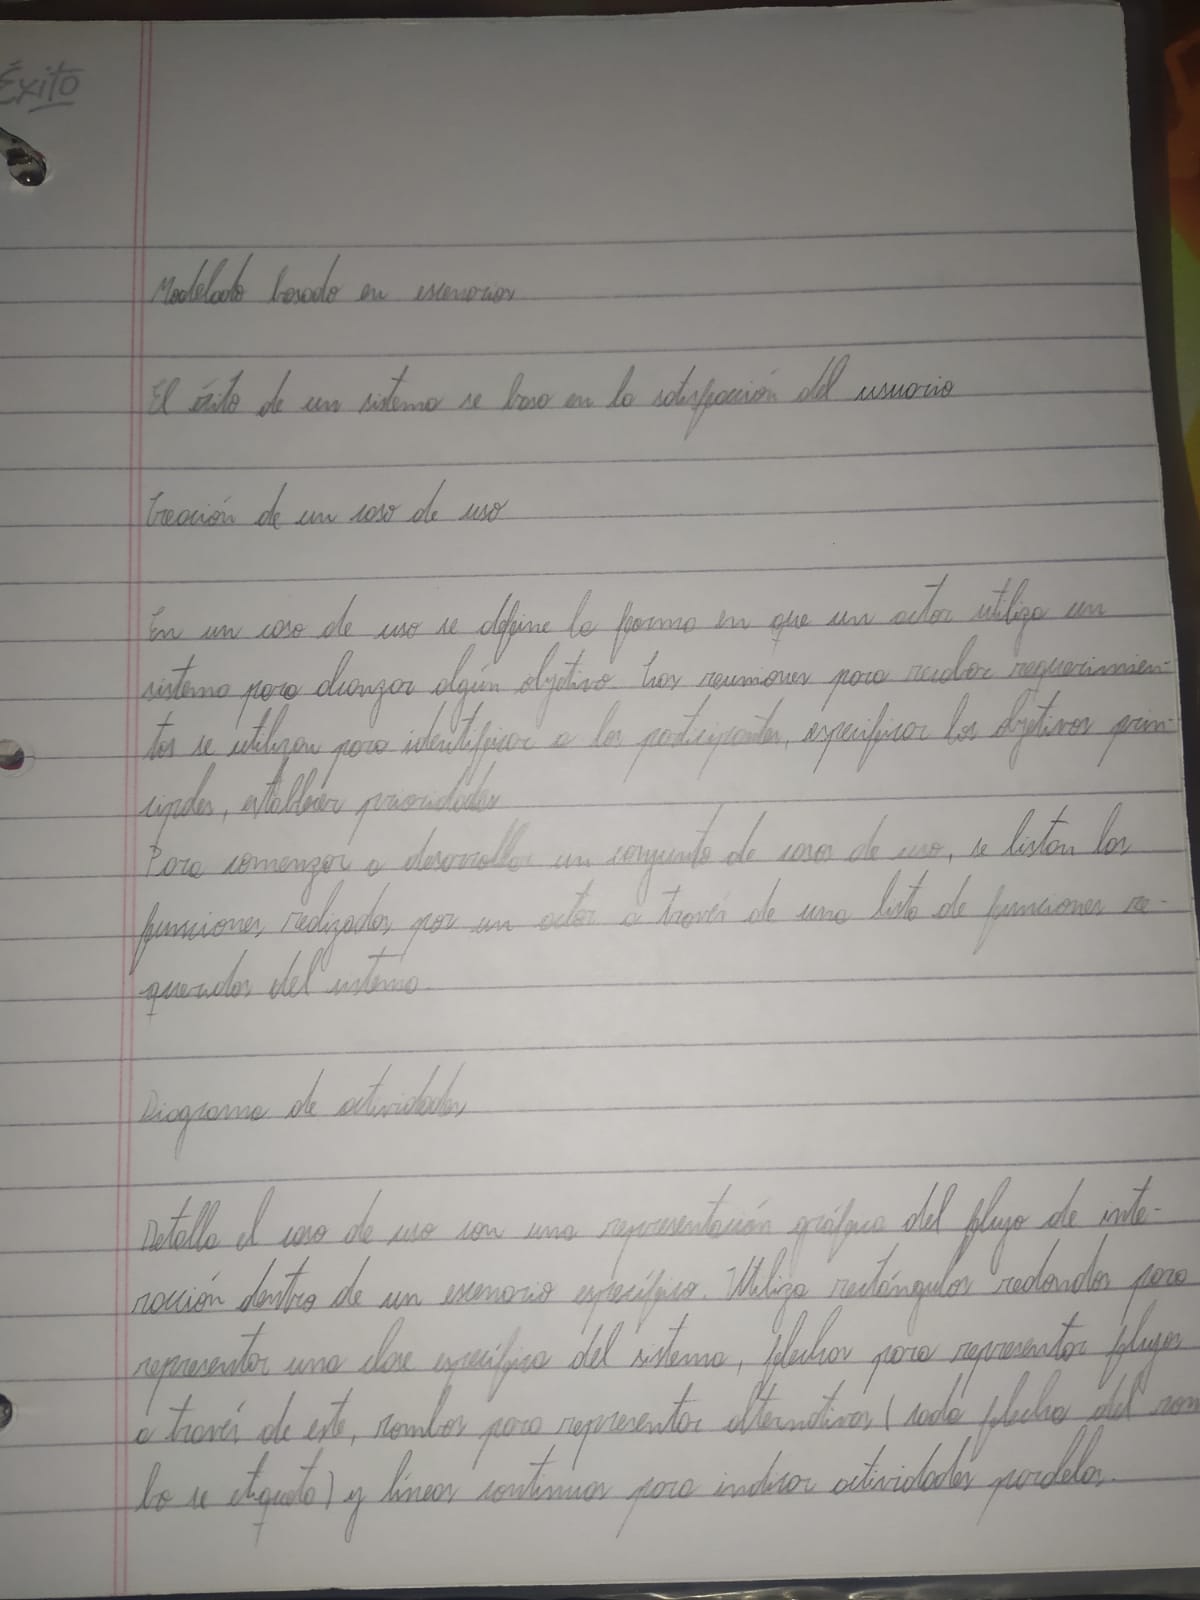 Éxito
Modelado basado en escenarios
El éxito de un sistema se basa en la satisfacción del usuario
Creación de un caso de uso
En un caso de uso se define la forma en que un actor utiliza un
sistema para alcanzar algún objetivo. Las reuniones para recabar requerimien-
tos se utilizan para identificar a los participantes, especificar los objetivos prin-
cipales, establecer prioridades
Para comenzar a desarrollar un conjunto de casos de uso, se listan las
funciones realizadas por un actor a través de una lista de funciones re-
queridas del sistema.
Diagrama de actividades
Detalla el caso de uso con una representación gráfica del flujo de inte-
racción dentro de un escenario específico. Utiliza rectángulos redondos para
representar una clase específica del sistema, flechas para representar flujos
a través de este, rombos para representar alternativas (cada flecha del rom
bo se etiqueta) y líneas continuas para indicar actividades paralelas.